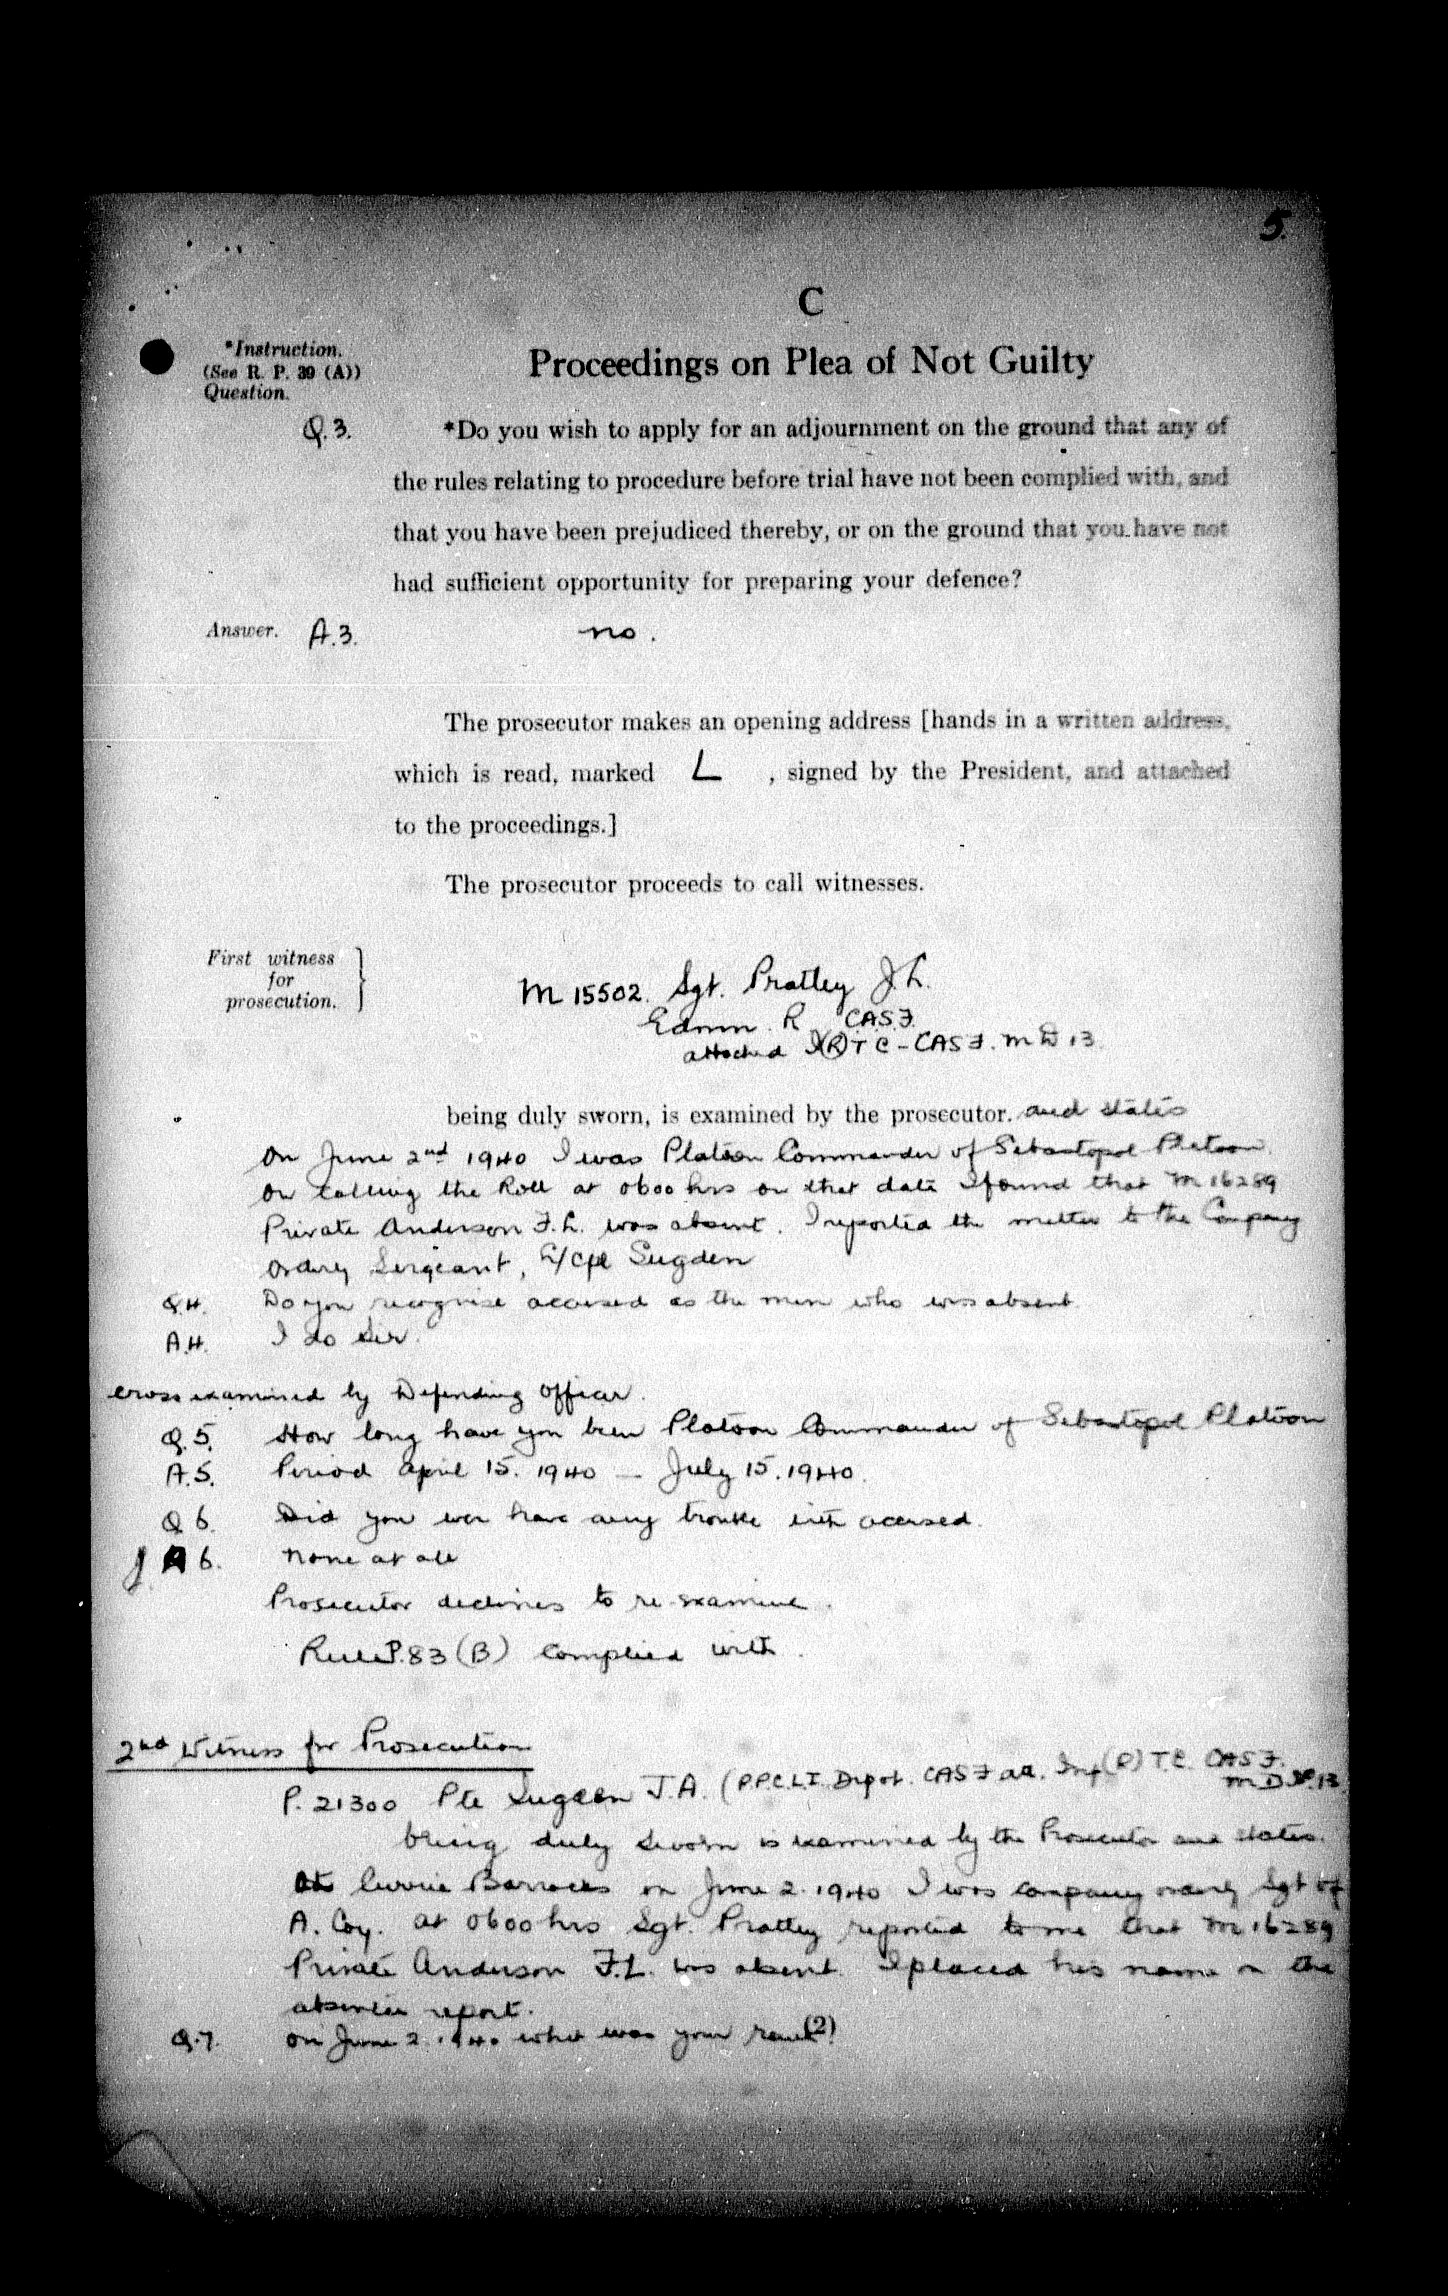 5.
C
Proceedings on Plea of Not Guilty
*Instruction.
(See R. P. 39 (A))
Question.
Q.3. *Do you wish to apply for an adjournment on the ground that any of
the rules relating to procedure before trial have not been complied with, and
that you have been prejudiced thereby, or on the ground that you have not
had sufficient opportunity for preparing your defence?
Answer. A.3. no.
The prosecutor makes an opening address [hands in a written address,
which is read, marked L , signed by the President, and attached
to the proceedings.]
The prosecutor proceeds to call witnesses.
First witness
for
prosecution.
M 15502. Sgt. Pratley J.L.
Edmn. R CASF.
attached I(R)TC - CASF. M D 13.
being duly sworn, is examined by the prosecutor. and states
On June 2nd 1940 I was Platoon Commander of Sebastopol Platoon.
On calling the Roll at 0600 hrs on that date I found that M 16289
Private Anderson F.L. was absent. I reported the matter to the Company
Orderly Sergeant, L/Cpl Sugden
Q4. Do you recognise accused as the man who was absent
A.4. I do Sir.
cross examined by Defending Officer.
Q.5. How long have you been Platoon Commander of Sebastopol Platoon
A.5. Period April 15. 1940 — July 15. 1940.
Q 6. Did you ever have any trouble with accused.
A 6. None at all
Prosecutor declines to re-examine.
Rule P. 83 (B) complied with.
2nd Witness for Prosecution
P. 21300 Pte Sugden J.A. (P.P.C.L.I. Depot. CASF att. Inf (R) T.C. CASF.
M.D. 13
being duly sworn is examined by the Prosecutor and states.
At Currie Barracks on June 2. 1940 I was company orderly Sgt of
A. Coy. at 0600 hrs Sgt. Pratley reported to me that M 16289
Private Anderson F.L. was absent. I placed his name on the
absentee report.
Q.7. On June 2. 1940 what was your rank
(2)